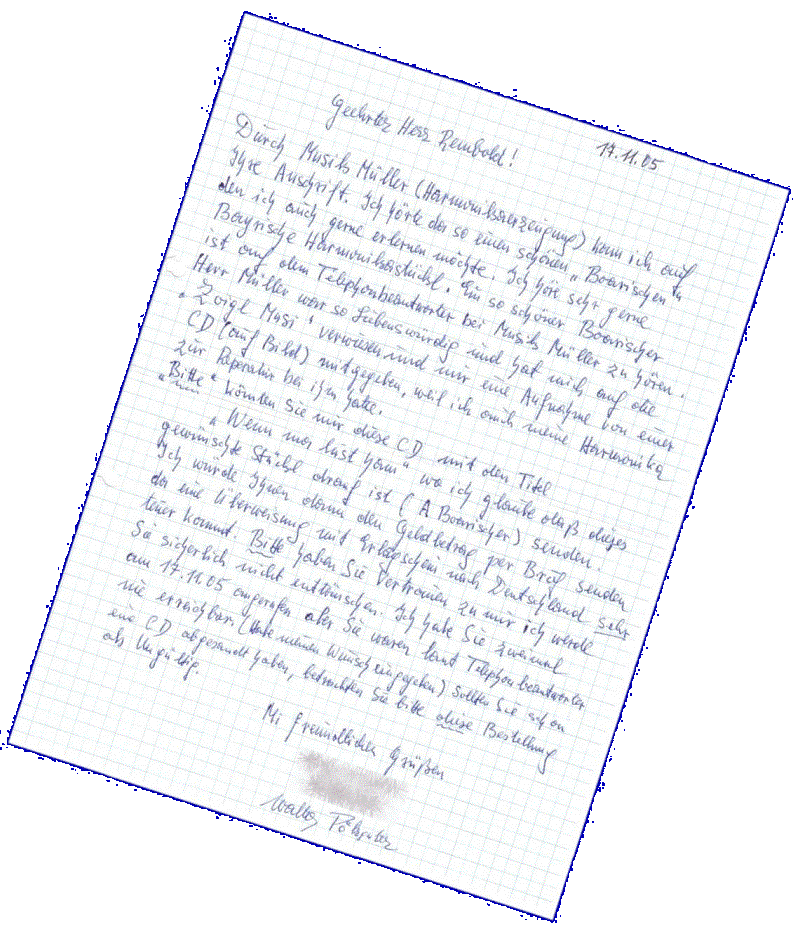 17.11.05
Geehrter Herr Rembold!
Durch Musik Müller (Harmonikaerzeugung) kam ich auf
Ihre Anschrift. Ich hörte da so einen schönen „Boarischen"
den ich auch gerne erlernen möchte. Ich höre sehr gerne
Bayrische Harmonikastückl. Ein so schöner Boarischer
ist auf dem Telephonbeantworter bei Musik Müller zu hören.
Herr Müller war so liebenswürdig und hat mich auf die
„Zoigl Musi" verwiesen und mir eine Aufnahme von einer
CD (auf Bild) mitgegeben, weil ich auch meine Harmonika
zur Reperatur bei ihm hatte.
„Bitte" könnten Sie mir diese CD mit den Titel
„Wenn mar lust ham" wo ich glaube daß dieses
gewünschte Stückl drauf ist (A Boarischer) senden.
Ich würde Ihnen dann den Geldbetrag per Brief senden
da eine Überweisung mit Erlagschein nach Deutschland sehr
teuer kommt. Bitte haben Sie Vertrauen zu mir ich werde
Sie sicherlich nicht enttäuschen. Ich habe Sie zweimal
am 17.11.05 angerufen aber Sie waren laut Telephonbeantworter
nie erreichbar. (Habe meinen Wunsch eingegeben) Sollten Sie schon
eine CD abgesandt haben, betrachten Sie bitte diese Bestellung
als Ungültig.
Mi freundlichen Grüßen
Walter